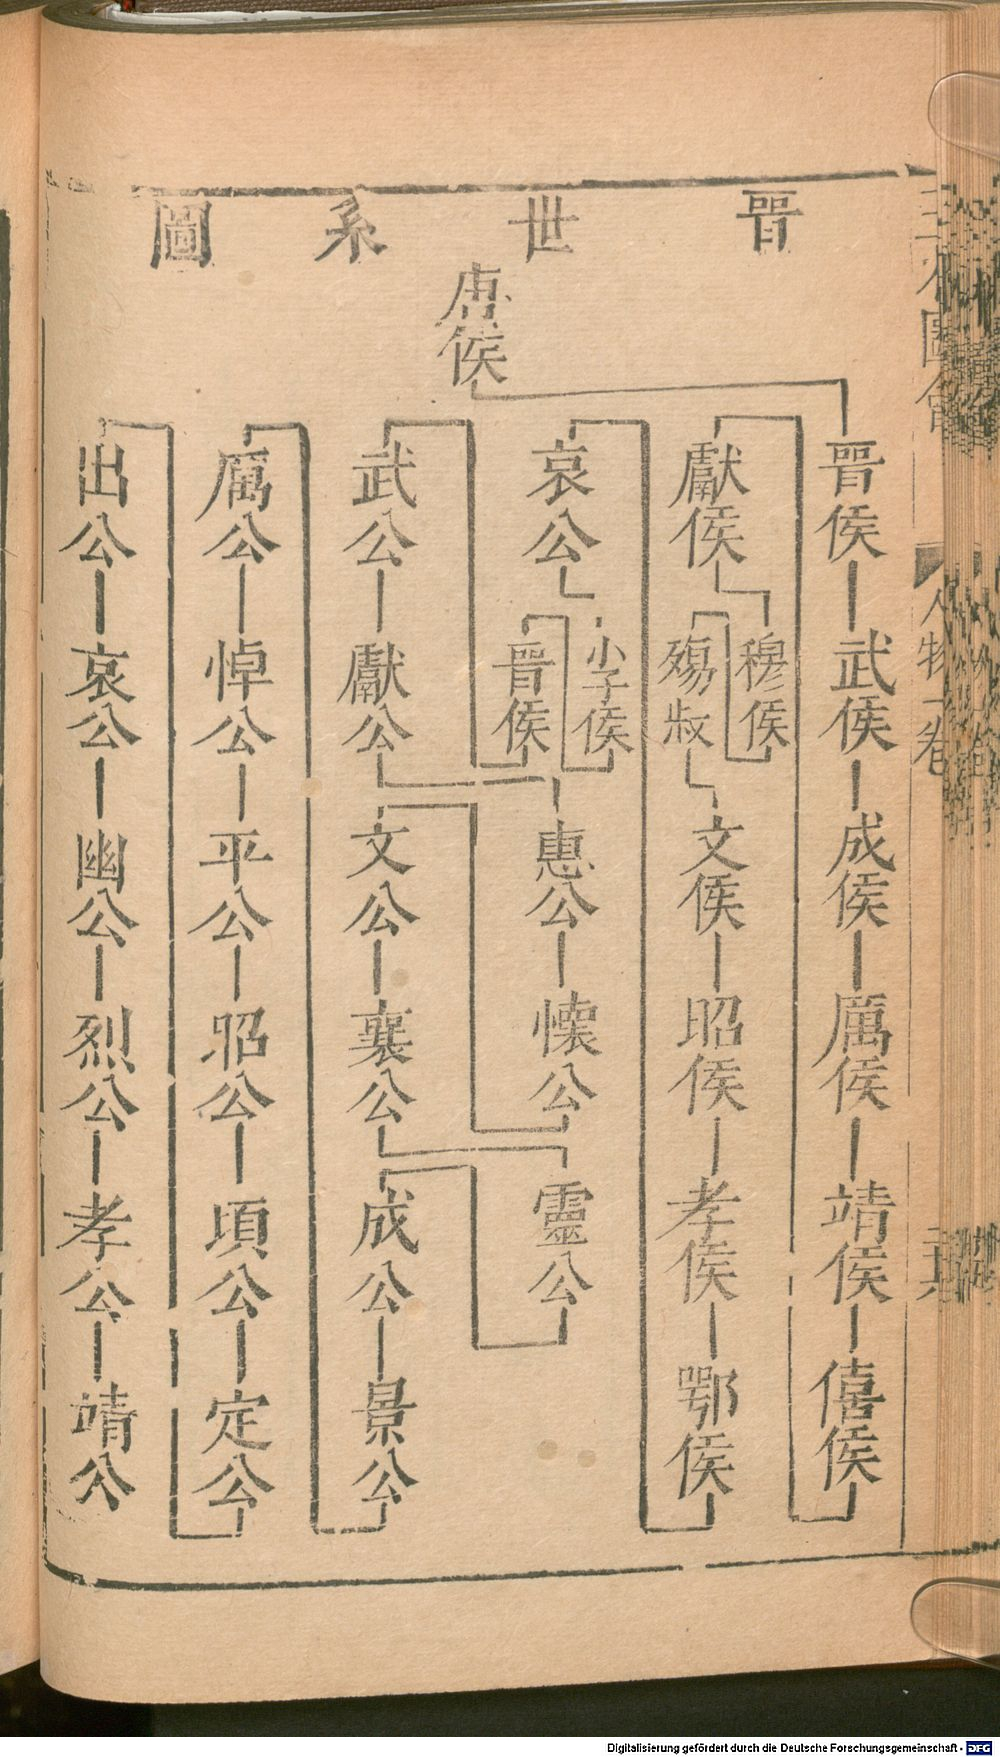 晉世系圖
唐侯
晉侯
武侯
成侯
厲侯
靖侯
僖侯
獻侯
穆侯
殤叔
文侯
昭侯
孝侯
鄂侯
哀公
小子侯
晉侯
武公
獻公
惠公
懷公
文公
襄公
靈公
成公
景公
厲公
悼公
平公
昭公
頃公
定公
出公
哀公
幽公
烈公
孝公
靖公
人物一卷
Digitalisierung gefördert durch die Deutsche Forschungsgemeinschaft - DFG